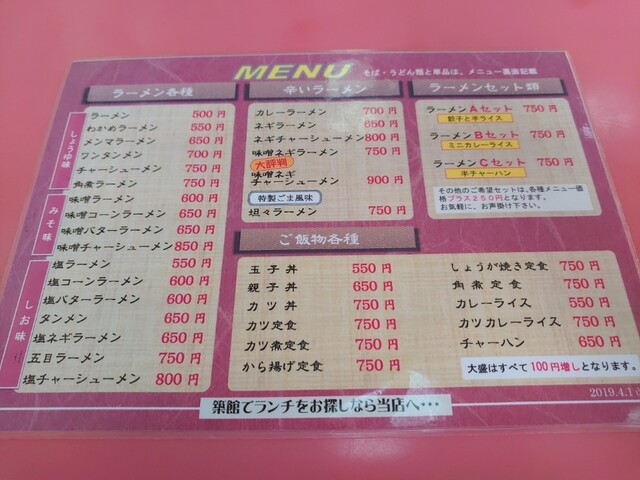 MENU
そば・うどん類と単品は、メニュー裏面記載
ラーメン各種
しょうゆ味
ラーメン 500円
わかめラーメン 550円
メンマラーメン 650円
ワンタンメン 700円
チャーシューメン 750円
角煮ラーメン 750円
みそ味
味噌ラーメン 600円
味噌コーンラーメン 650円
味噌バターラーメン 650円
味噌チャーシューメン 850円
しお味
塩ラーメン 550円
塩コーンラーメン 600円
塩バターラーメン 600円
タンメン 650円
塩ネギラーメン 650円
五目ラーメン 750円
塩チャーシューメン 800円
辛いラーメン
カレーラーメン 700円
ネギラーメン 650円
ネギチャーシューメン 800円
味噌ネギラーメン 750円
大評判
味噌ネギ
チャーシューメン 900円
特製ごま風味
坦々ラーメン 750円
ラーメンセット類
ラーメンAセット 750円
餃子と半ライス
ラーメンBセット 750円
ミニカレーライス
ラーメンCセット 750円
半チャーハン
その他のご希望セットは、各種メニュー価
格プラス250円となります。
お気軽に、お声掛け下さい。
ご飯物各種
玉子丼 550円
親子丼 650円
カツ丼 750円
カツ定食 750円
カツ煮定食 750円
から揚げ定食 750円
しょうが焼き定食 750円
角煮定食 750円
カレーライス 550円
カツカレーライス 750円
チャーハン 650円
大盛はすべて100円増しとなります。
2019.4.1
築館でランチをお探しなら当店へ・・・